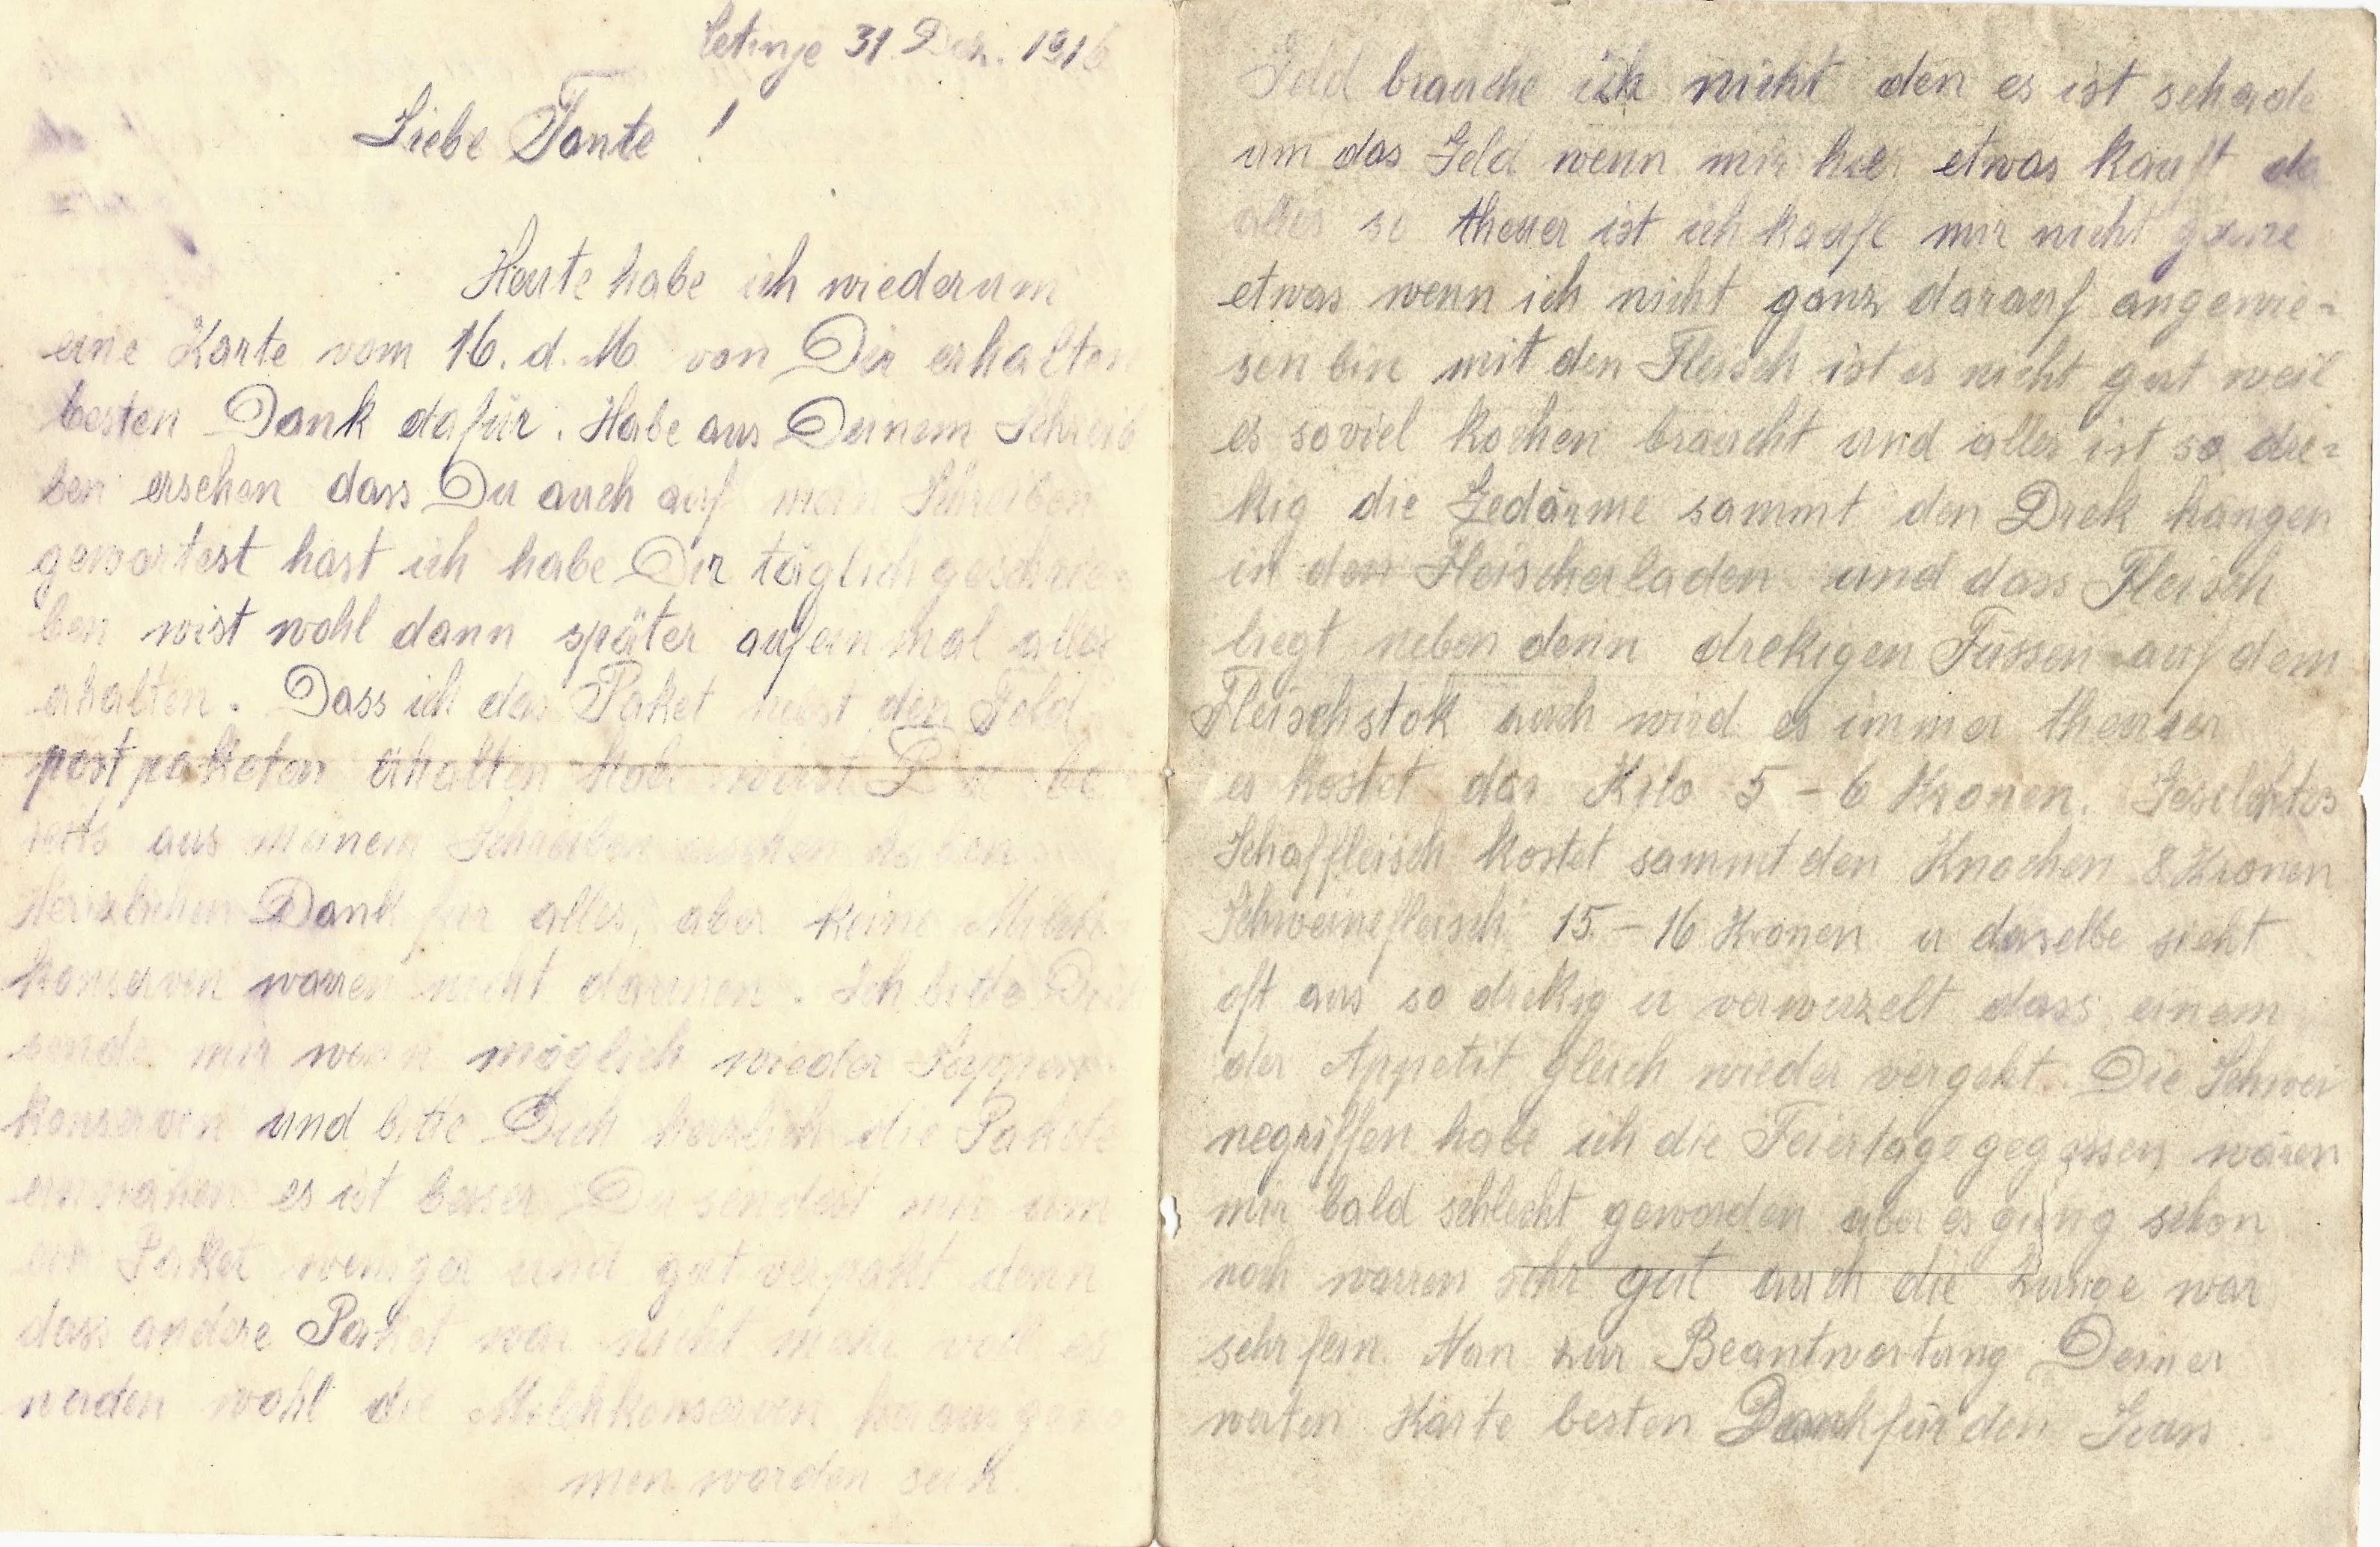 Cetinje 31 Dez. 1916
Liebe Tante !
Heute habe ich wiederum
eine Karte vom 16. d. M. von Dir erhalten
besten Dank dafür. Habe aus Deinem Schrei
ben ersehen dass Du auch auf mein Schreiben
gewartest hast ich habe Dir täglich geschrie-
ben wist wohl dann später aufeinmal alles
erhalten. Dass ich das Paket den Feld
postpaketen erhalten habe wirst Du be
reits aus meinem Schreiben ersehen haben
Herzlichen Dank für alles, aber keine Milch
konserven warren nicht darinnen. Ich bitte Dich
sende mir wenn möglich wieder Suppen-
konserven und bitte Dich herzlich die Pakete
einnähen es ist besser Du sendest mir um
ein Paket weniger und gut verpakt denn
dass andere Paket war nicht mehr voll es
werden wohl die Milchkonserven herausgenom
men worden sein.
Geld brauche ich nicht den es ist schade
um das Geld wenn mir hier etwas kauft da
alles so theuer ist ich kaufe mir nicht gerne
etwas wenn ich nicht ganz darauf angewie-
sen bin mit den Fleisch ist es nicht gut weil
es soviel kochen braucht und alles ist so dre-
kig die Gedärme sammt den Drek hängen
in den Fleischerladen und dass Fleisch
liegt neben denn drekigen Füssen auf dem
Fleischstok auch wird es immer theurer
es kostet das Kilo 5 - 6 Kronen. Geselchtes
Schaffleisch kostet sammt den Knochen 8 Kronen
Schweinefleisch 15 - 16 Kronen u daselbe sieht
oft aus so drekig u verwuzelt dass einem
der Appetit gleich wieder vergeht. Die Schwei
negriffen habe ich die Feiertage gegessen wären
mir bald schlecht geworden aber es ging schon
noch warren sehr gut auch die Zunge war
sehr fein. Nun zur Beantwortung Deiner
werten Karte besten Dank für den